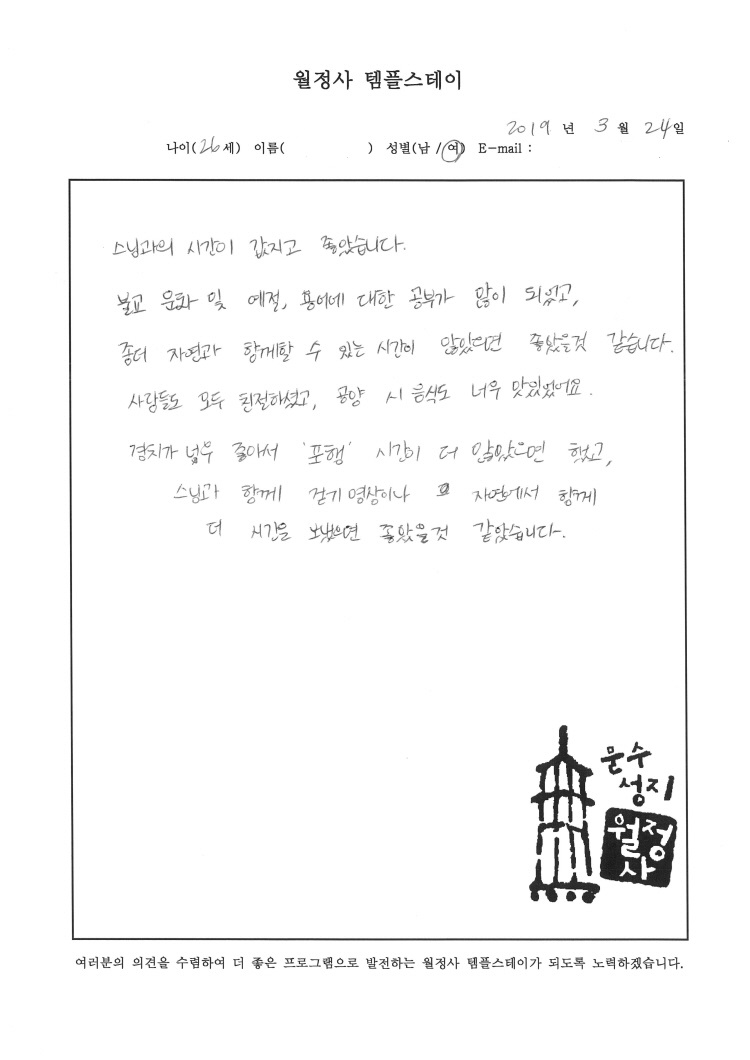 월정사 템플스테이
2019 년 3 월 24일
나이(26세) 이름( ) 성별(남 / 여) E-mail :
스님과의 시간이 값지고 좋았습니다.
불교 문화 및 예절, 용어에 대한 공부가 많이 되었고,
좀더 자연과 함께할 수 있는 시간이 많았으면 좋았을것 같습니다.
사람들도 모두 친절하셨고, 공양 시 음식도 너무 맛있었어요.
경치가 너무 좋아서 '포행' 시간이 더 많았으면 했고,
스님과 함께 걷기 명상이나 자연에서 함께
더 시간을 보냈으면 좋았을것 같았습니다.
문수
성지
월정
사
여러분의 의견을 수렴하여 더 좋은 프로그램으로 발전하는 월정사 템플스테이가 되도록 노력하겠습니다.